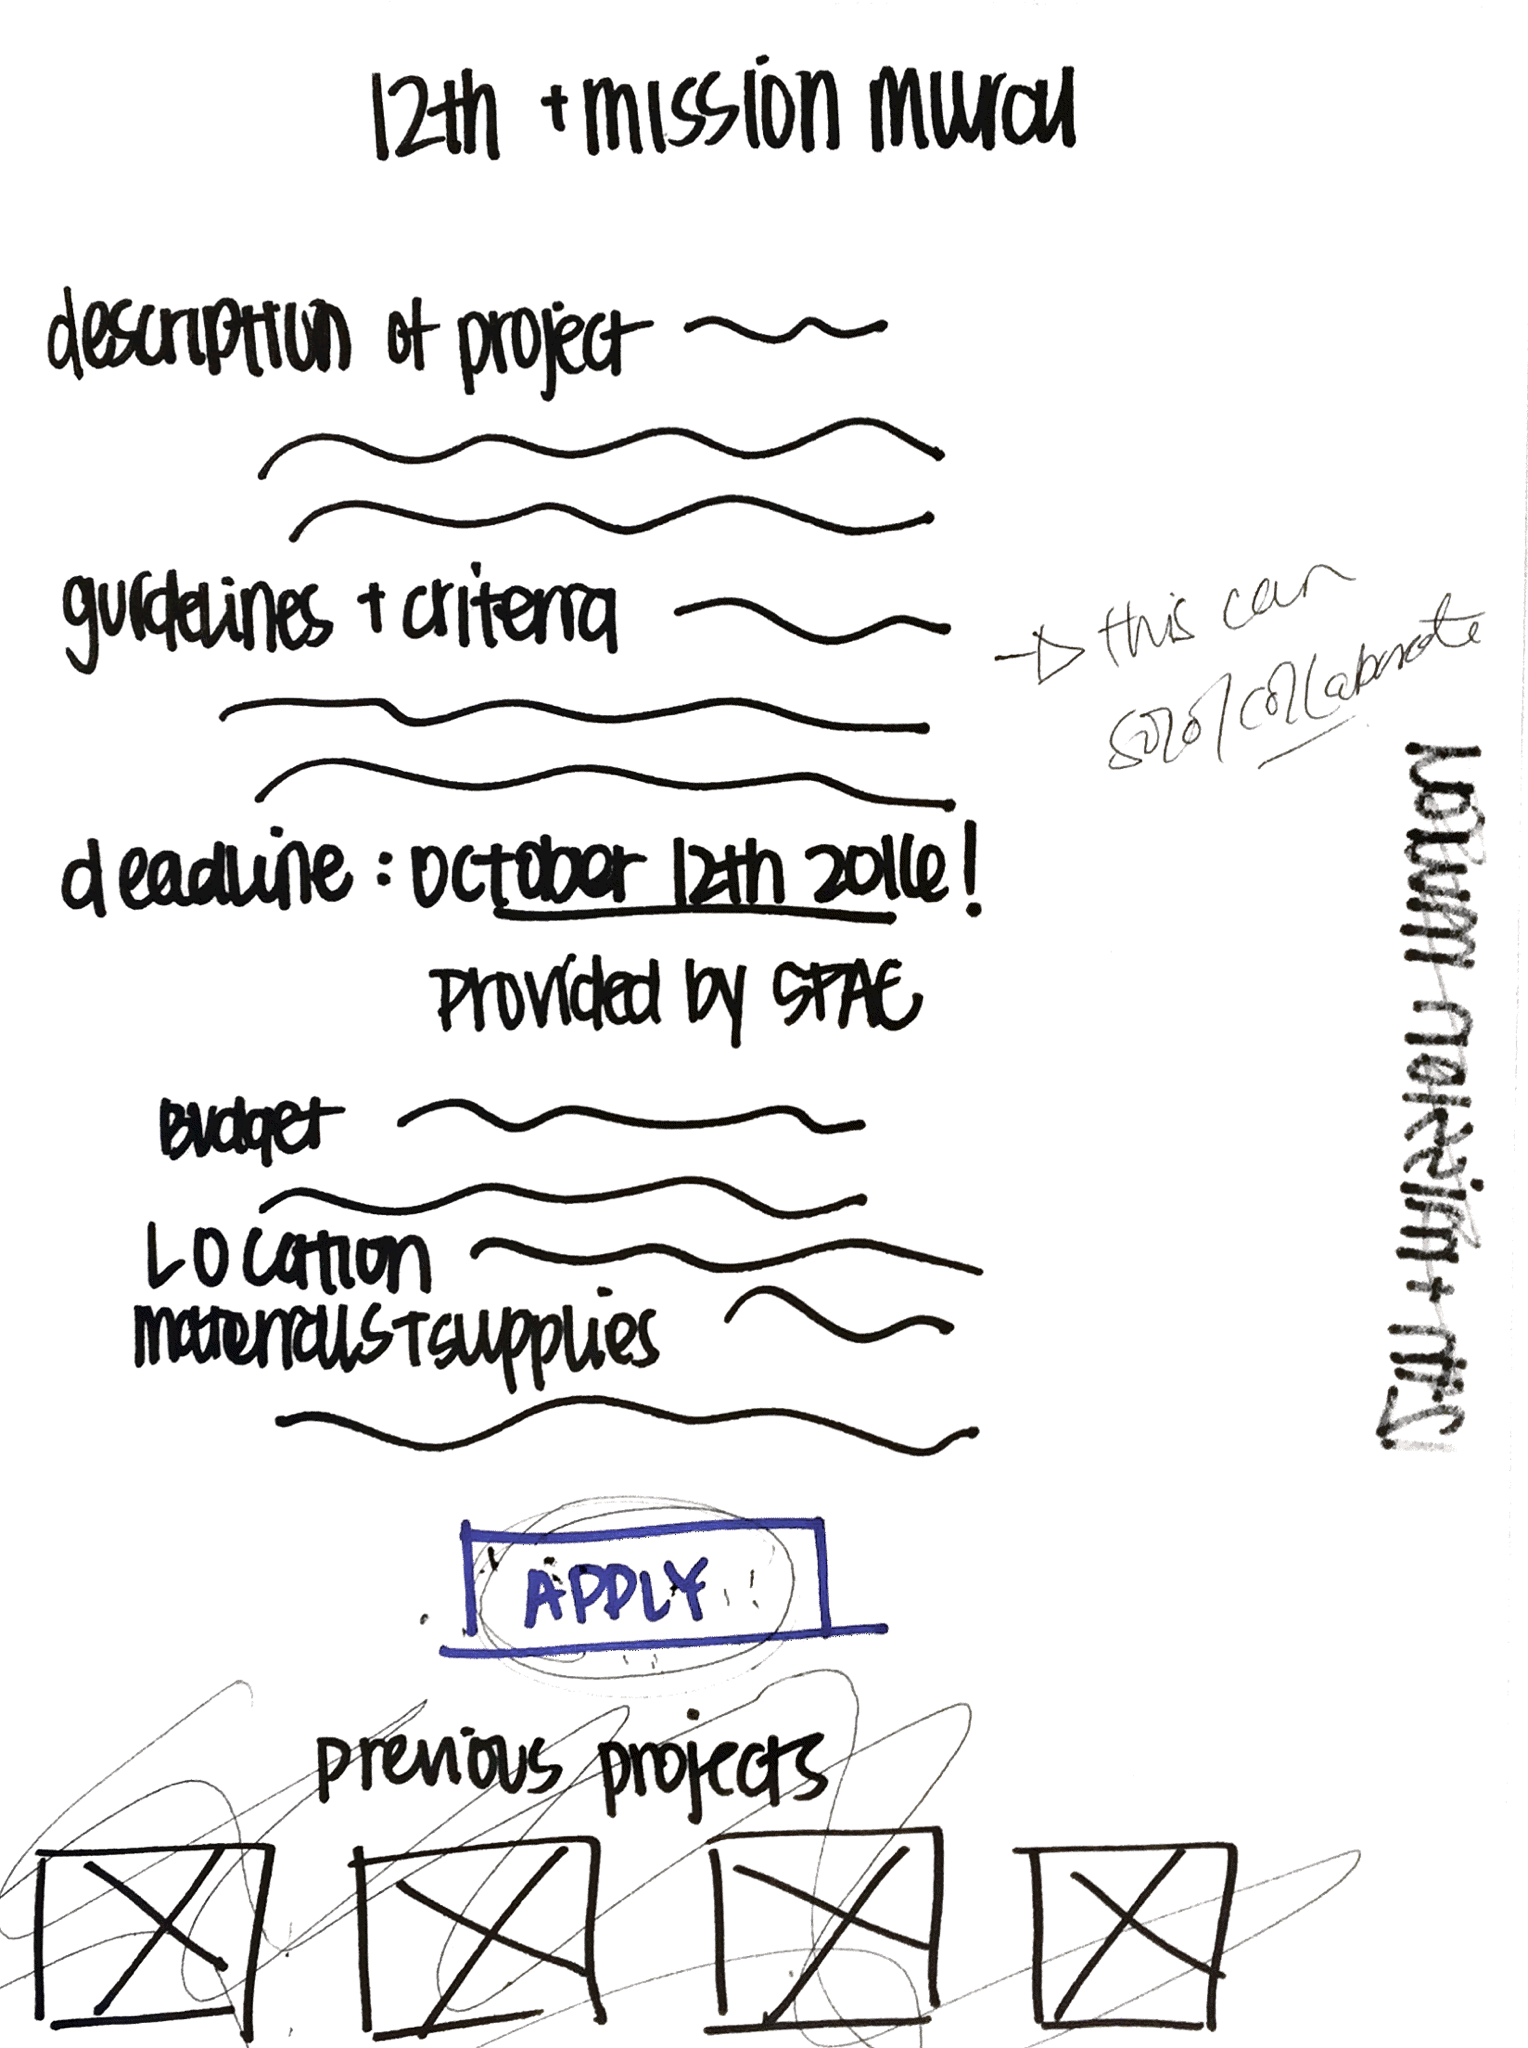 12th + mission mural
description of project
guidelines + criteria
→ this can
solo/collaborate
deadline: october 12th 2016!
Provided by SPAE
Budget
Location
materials + supplies
APPLY
previous projects